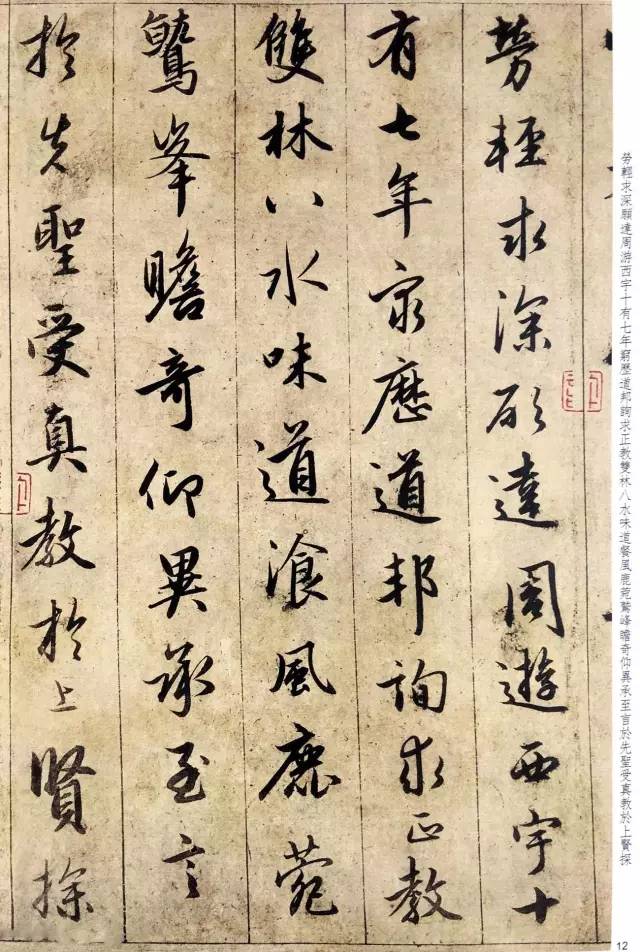 勞輕求深願達周遊西宇十
有七年窮歷道邦詢求正教
雙林八水味道湌風鹿菀
鷲峯瞻奇仰異承至言
於先聖受真教於上賢探
勞輕求深願達周游西宇十有七年窮歷道邦詢求正教雙林八水味道餐風鹿菀鷲峰瞻奇仰異承至言於先聖受真教於上賢探
12